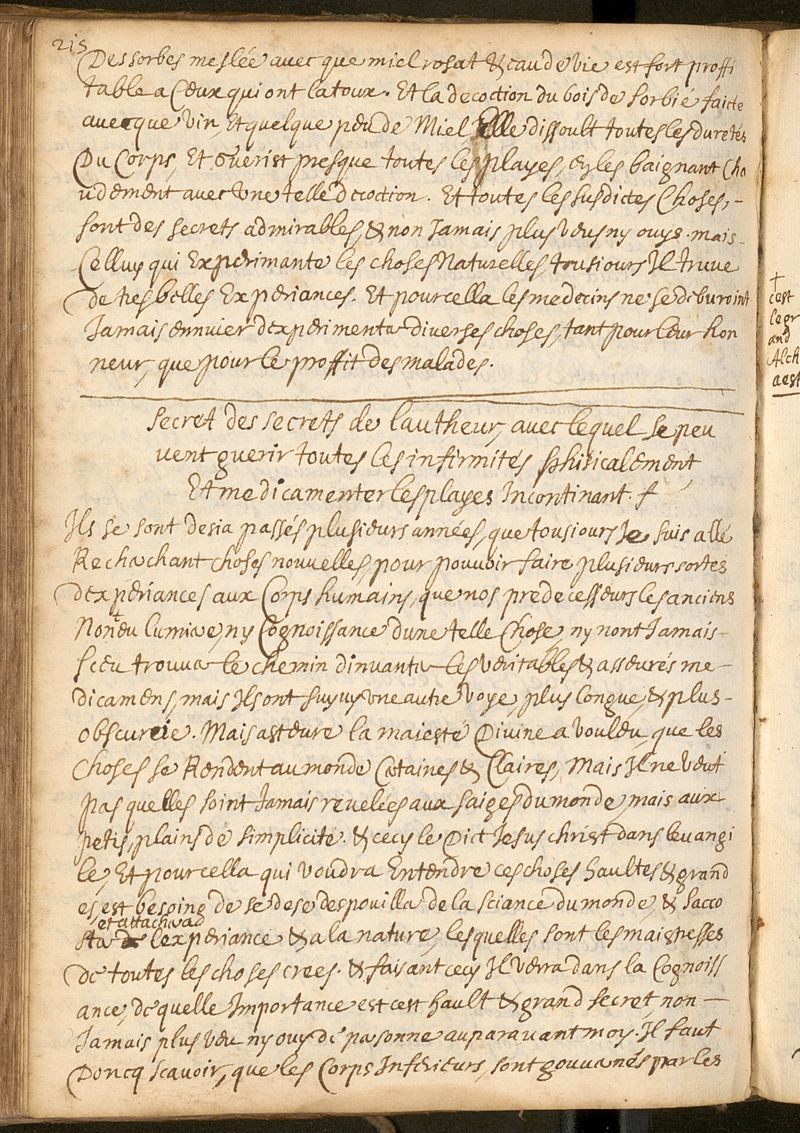 213
Des sorbes meslée avec que miel rosat & eau de vie est fort proffi
table a Ceux qui ont la toux. Et la decoction du bois de Sorbié faicte
avecque vin, Et quelque peu de Miel Elle dissoult toutes les duretés
Du Corps, Et Guerist presque toutes les playes, en les baignant Cha
udement avec Une telle decoction. Et toutes les susdictes Choses, -
sont des secrets admirables, & non Jamais plus veus ny ouys. mais -
Celluy qui Experimante les choses Naturelles tousiours Il truve
de tres belles Experiances. Et pour cella les medecins ne se deburoint
Jamais ennuier d'experimenter diverses choses, tant pour leur hon
neur, que pour le proffit des malades.
Secret des secrets de lautheur, avec lequel se peu
vent guerir toutes les infirmités phisicalement,
Et medicamenter les playes Incontinant. +
Ils se sont desia passés plusieurs années, que tousiours Je suis allé
Rechachant choses nouvelles, pour pouvoir faire plusieurs sortes
d'experiances aux Corps humains, que nos predecesseurs les anciens
Non + eu lumiere, ny Cognoissance d'une telle Chose, ny nont Jamais -
sceu trouver le chemin d'inventer les veritables & asseurés me -
dicamens, mais Ils ont suyvy une autre voye, plus longue, & plus -
obscure. Mais asteure la maiesté Divine a vouleu, que les
Choses se Rendent au monde Certaines & Claires, Mais Il ne veut
pas quelles soint Jamais revelées aux saiges du monde, mais aux
petis, plains de simplicité. & cecy le Dict Jesus christ dans levangi
le, Et pour cella qui voudra Entendre ces choses haultes & grand
es, est besoing de se despouiller de la sciance du monde, & sacco
et attacher a
ster lexperiance & a la nature, lesquelles sont les maistresses
de toutes les choses crees. & faisant cecy Il verra dans la Cognoiss
ance, de quelle Importance est cest hault & grand secret, non -
Jamais plus veu ny ouy de personne auparavant moy. Il faut
Doncq scavoir, que les Corps Inferieurs, sont gouvernés par les
+
cest
le gr
and
Alch
aest